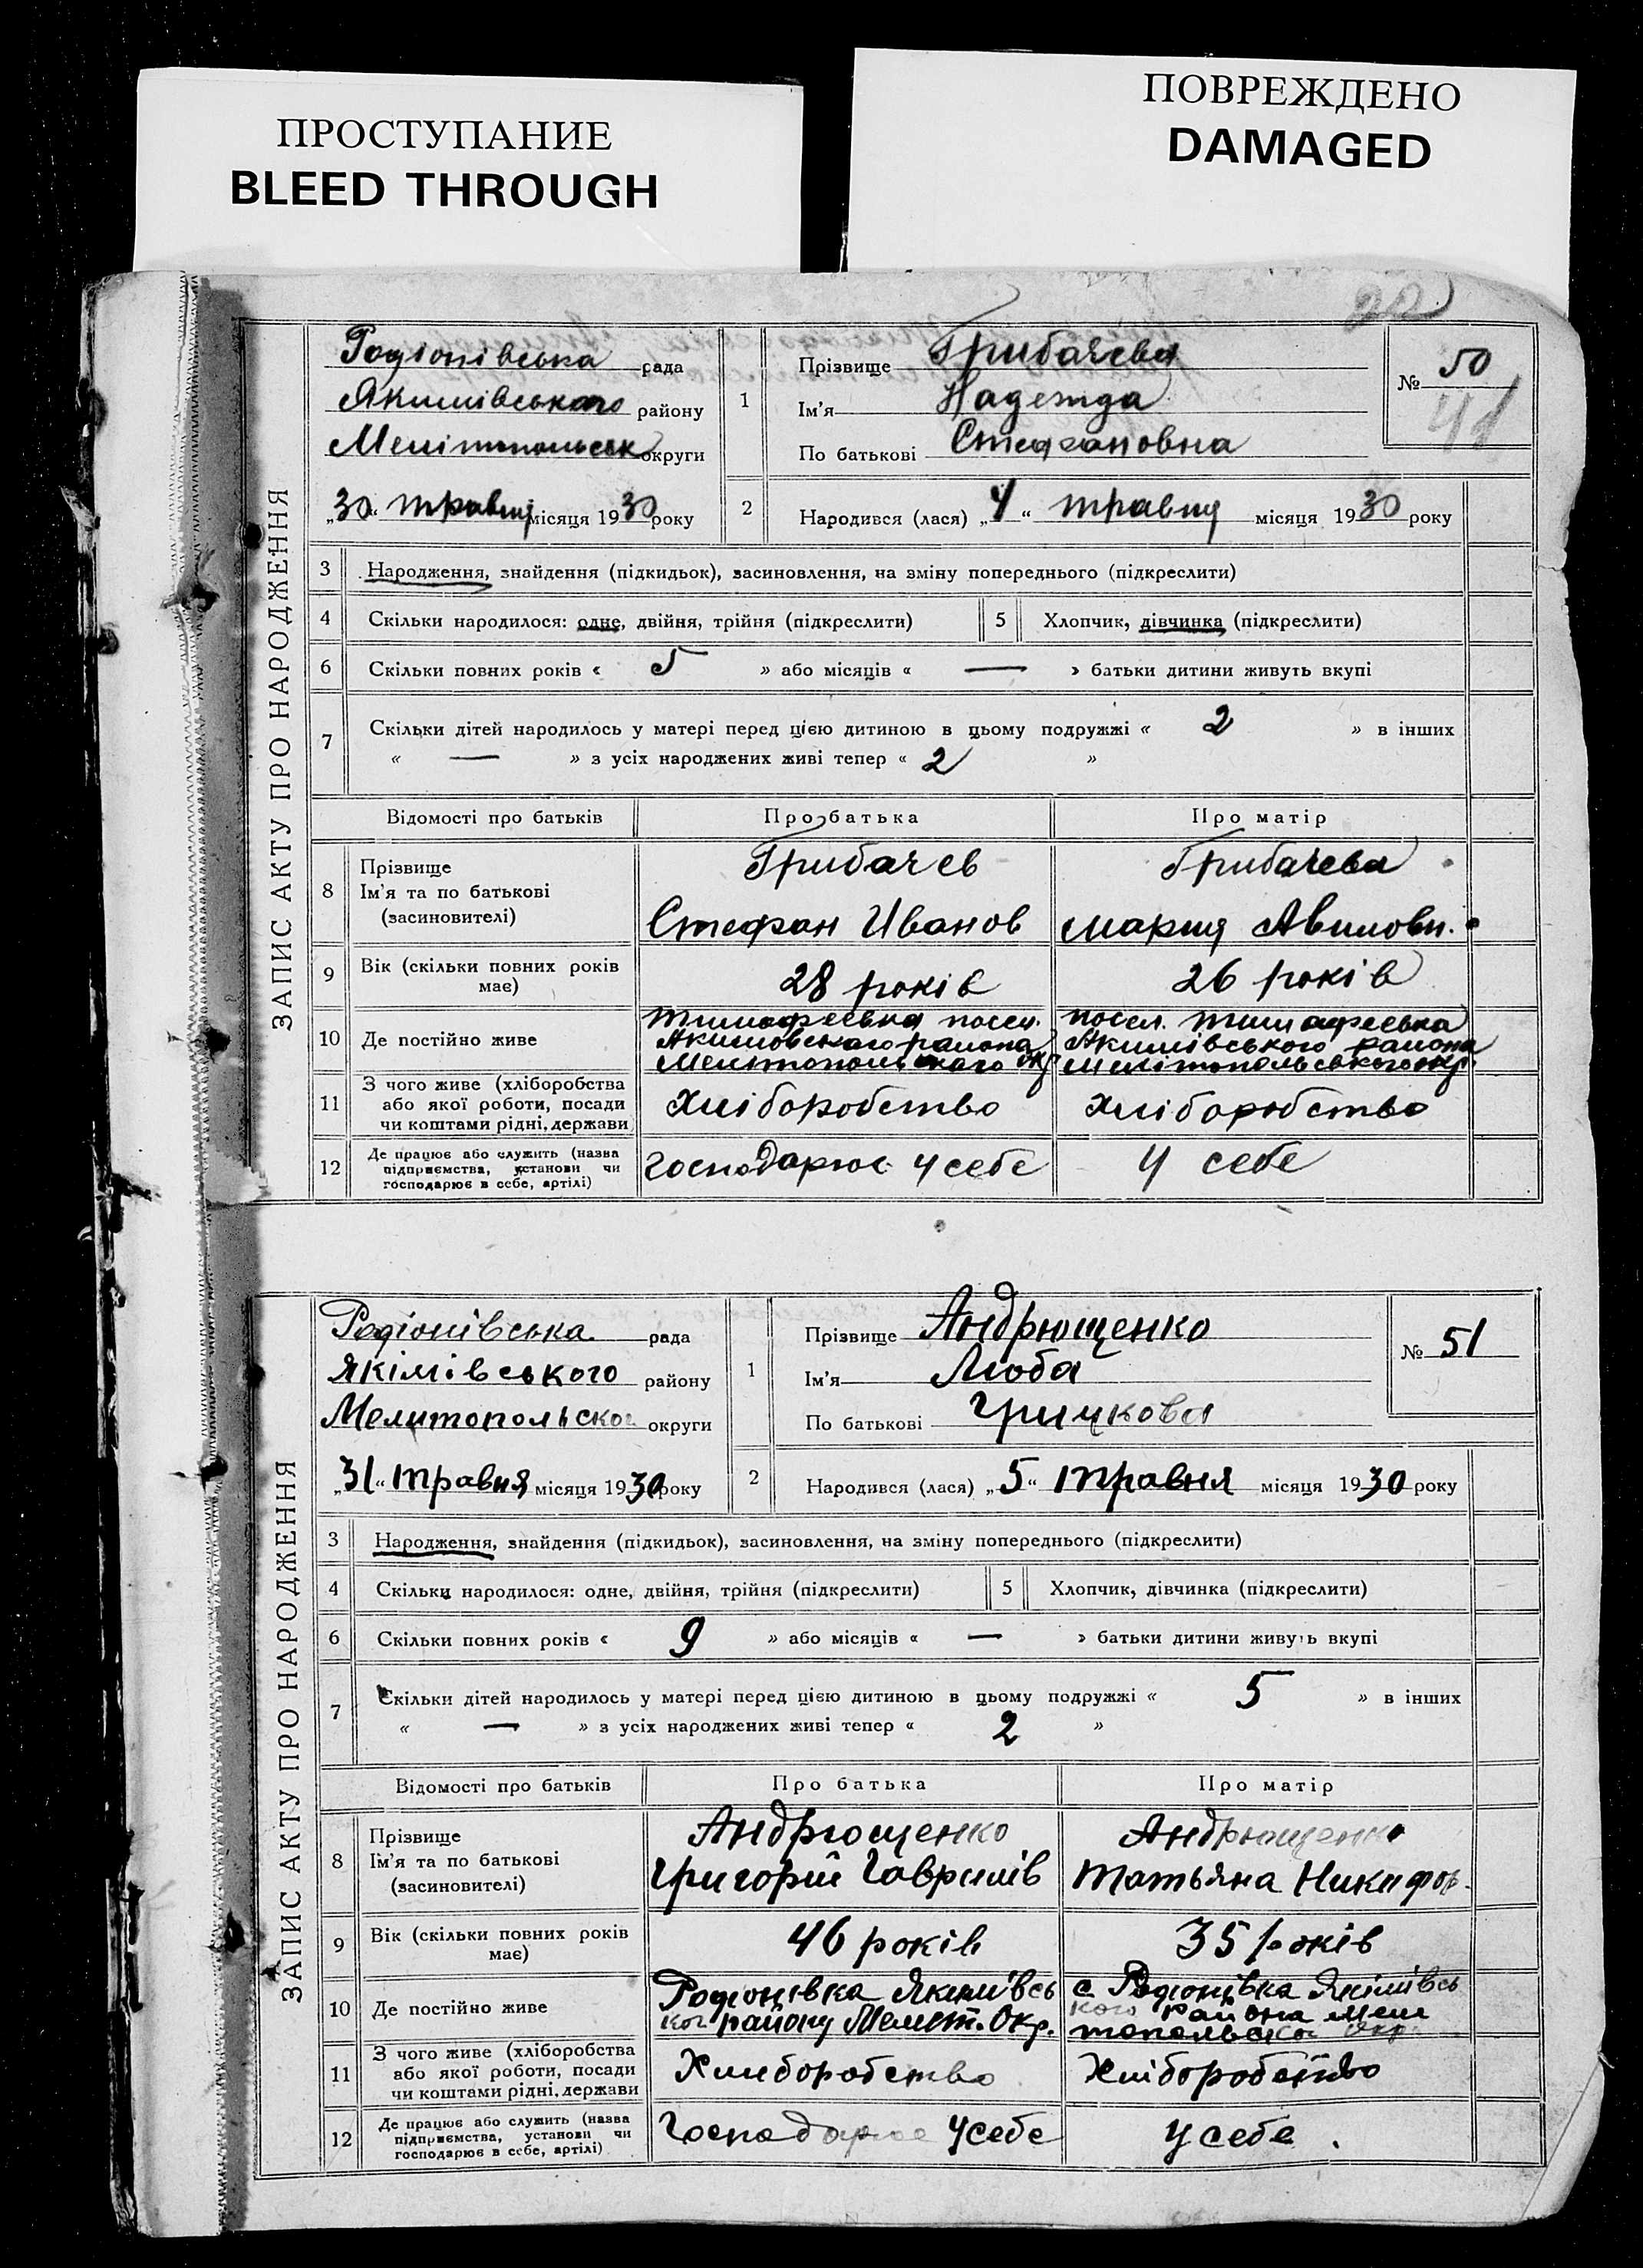 ПРОСТУПАНИЕ
BLEED THROUGH
ПОВРЕЖДЕНО
DAMAGED
22
ЗАПИС АКТУ ПРО НАРОДЖЕННЯ
Родіонівська рада
Якимівського району
Мелітопольськ округи
„30“ травня місяця 1930 року
1 Прізвище Грибачева
Ім'я Надежда
По батькові Стефановна
№ 50
41
2 Народився (лася) „4“ травня місяця 1930 року
3 Народження, знайдення (підкидьок), засиновлення, на зміну попереднього (підкреслити)
4 Скільки народилося: одне, двійня, трійня (підкреслити) 5 Хлопчик, дівчинка (підкреслити)
6 Скільки повних років « 5 » або місяців « — » батьки дитини живуть вкупі
7 Скільки дітей народилось у матері перед цією дитиною в цьому подружжі « 2 » в інших
« — » з усіх народжених живі тепер « 2 »
Відомості про батьків Про батька Про матір
8 Прізвище Ім'я та по батькові (засиновителі)
Грибачев Грибачева
Стефан Иванов Мария Авимовн.
9 Вік (скільки повних років має) 28 років 26 років
10 Де постійно живе
Тимофеевка посел. посел. Тимофеевка
Акимовского района Якимівського района
Мелитопольского окр Мелітопольського окр.
11 З чого живе (хліборобства або якої роботи, посади чи коштами рідні, держави) Хліборобство Хліборобство
12 Де працює або служить (назва підприємства, установи чи господарює в себе, артілі) господарює у себе у себе
ЗАПИС АКТУ ПРО НАРОДЖЕННЯ
Родіонівська рада
Якімівського району
Мелитопольско округи
„31“ травня місяця 1930 року
1 Прізвище Андрющенко
Ім'я Люба
По батькові Гришкова
№ 51
2 Народився (лася) „5“ травня місяця 1930 року
3 Народження, знайдення (підкидьок), засиновлення, на зміну попереднього (підкреслити)
4 Скільки народилося: одне, двійня, трійня (підкреслити) 5 Хлопчик, дівчинка (підкреслити)
6 Скільки повних років « 9 » або місяців « — » батьки дитини живуть вкупі
7 Скільки дітей народилось у матері перед цією дитиною в цьому подружжі « 5 » в інших
« — » з усіх народжених живі тепер « 2 »
Відомості про батьків Про батька Про матір
8 Прізвище Ім'я та по батькові (засиновителі)
Андрющенко Андрющенко
Григорій Гаврилів Татьяна Никифор.
9 Вік (скільки повних років має) 46 років 35 років
10 Де постійно живе
Родіонівка Якимівсь с Родіонівка Якімівсь
ког району Мелит. Окр. кого района Мели
топольско окр.
11 З чого живе (хліборобства або якої роботи, посади чи коштами рідні, держави Хлиборобство Хліборобство
12 Де працює або служить (назва підприємства, установи чи господарює в себе, артілі) Господарює у себе у себе.